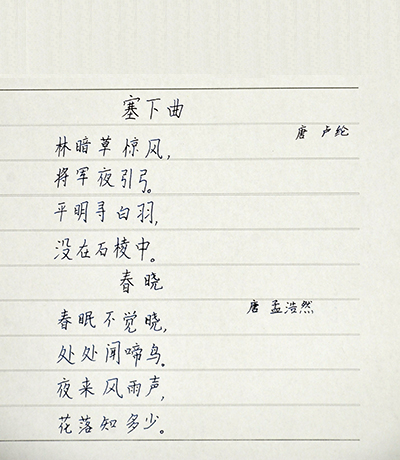 塞下曲
唐 卢纶
林暗草惊风,
将军夜引弓。
平明寻白羽,
没在石棱中。
春晓
唐 孟浩然
春眠不觉晓,
处处闻啼鸟。
夜来风雨声,
花落知多少。